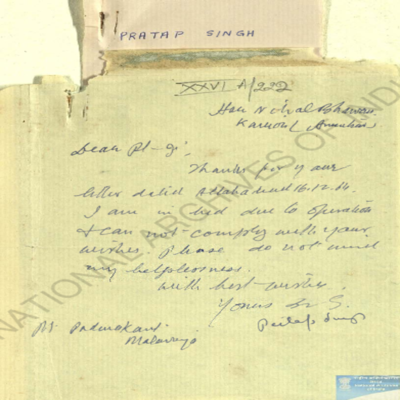 PRATAP SINGH
XXVI A/222
Dear Pt-Ji,
Thanks for your
letter dated Allahabad 16.12.
I am in bed due to operation
& can not comply with your
wishes. Please do not mind
my helplessness.
With best wishes
Yours
Partap Singh
Pt Padmakant
Malaviya
NATIONAL ARCHIVES OF INDI